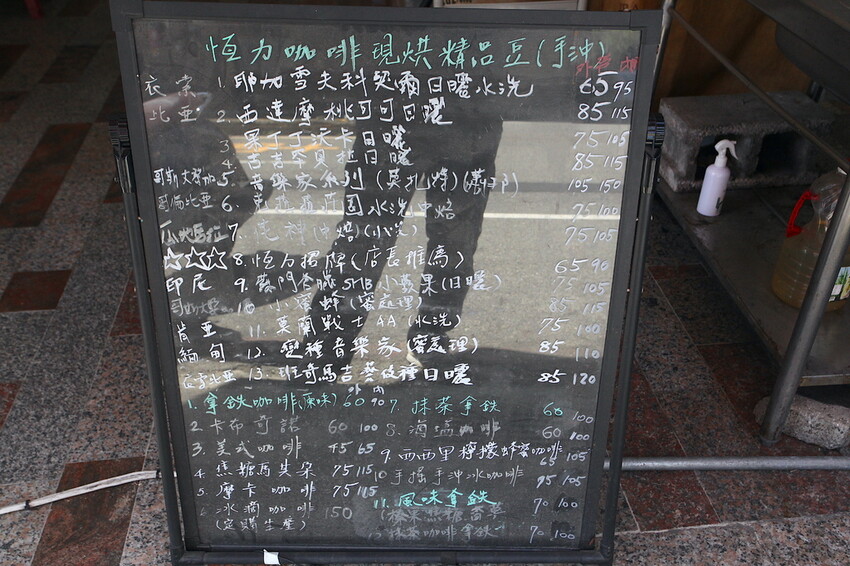 恆力咖啡現烘精品豆(手沖)
外帶 內
衣索 1. 耶加雪夫科契爾日曬水洗 65 95
比亞 2. 西達摩桃可可日曬 85 115
3. 果丁丁沃卡日曬 75 105
4. 古吉罕貝拉日曬 85 115
哥斯大黎加 5. 音樂家系列(莫扎特) 105 150
哥倫比亞 6. 水洗中焙 75 100
瓜地馬拉 7 花神(中焙)(水洗) 75 105
☆☆☆ 8. 恆力招牌(店長推薦) 65 90
印尼 9. 蘇門答臘SMB小蘋果(日曬) 75 105
10 小蜜蜂(蜜處理) 85 115
肯亞 11. 莫蘭戰士AA(水洗) 75 100
緬甸 12. 變種音樂家(蜜處理) 85 110
衣索比亞 13. 班奇馬吉藝伎種日曬 85 120
外 內
1. 拿鐵咖啡(原味) 60 90 7. 抹茶拿鐵 60 100
2. 卡布奇諾 60 100 8. 海鹽咖啡 60 100
3. 美式咖啡 45 65 9. 西西里檸檬蜂蜜咖啡 65 105
4. 焦糖瑪其朵 75 115 10 手搖手沖冰咖啡 75 105
5. 摩卡咖啡 75 115 11. 風味拿鐵 70 100
冰滴咖啡 150 榛果焦糖香草
(定期生產) 抹茶咖啡拿鐵 70 100